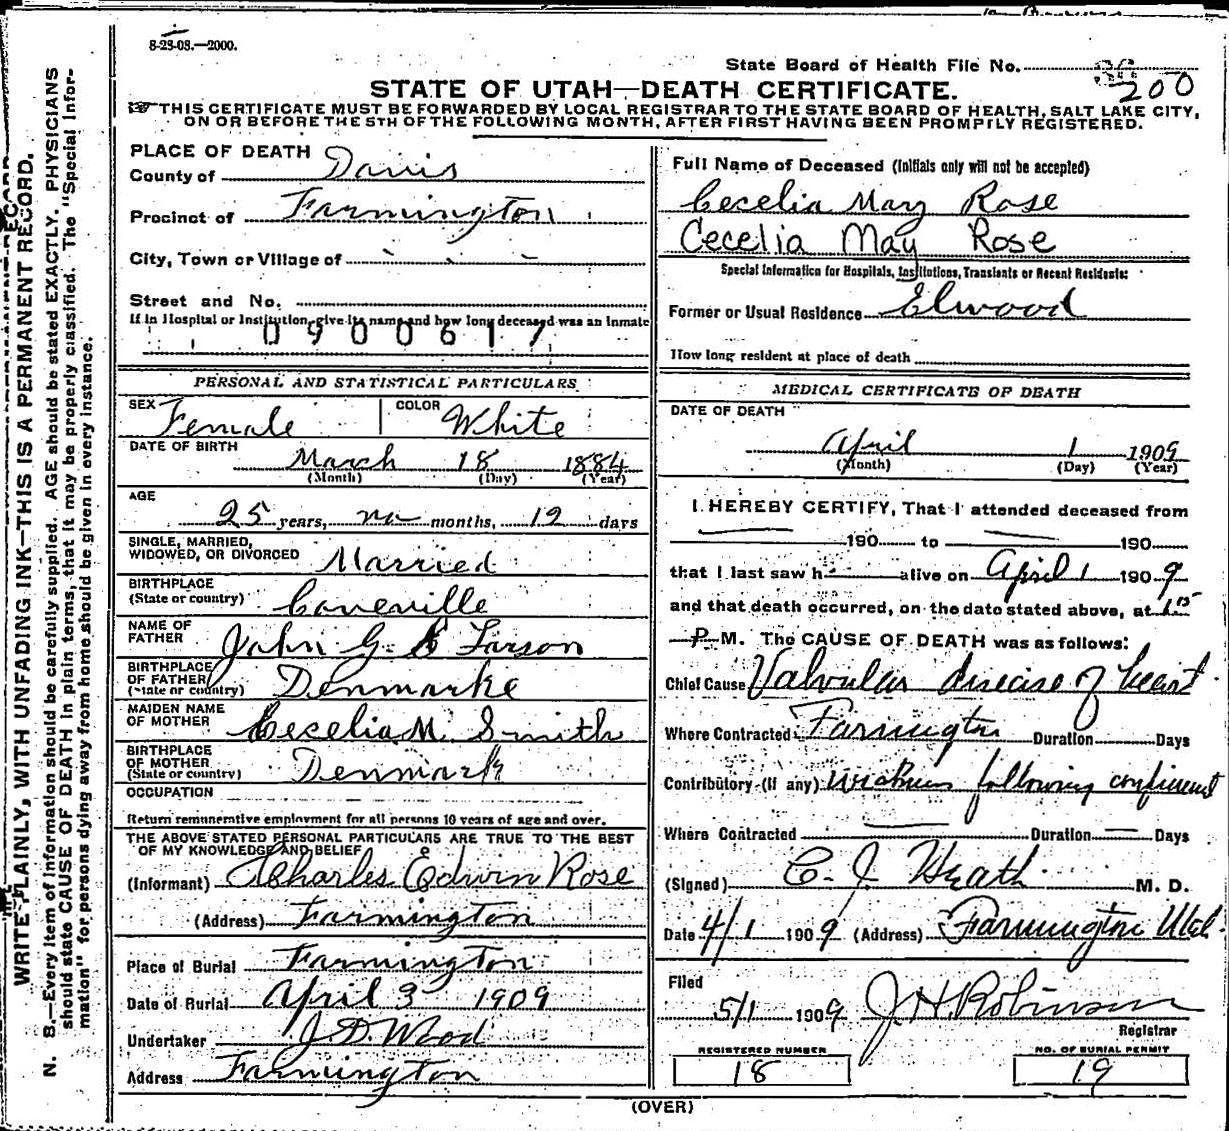 8-25-08.—2000.
State Board of Health File No. 200
STATE OF UTAH—DEATH CERTIFICATE.
THIS CERTIFICATE MUST BE FORWARDED BY LOCAL REGISTRAR TO THE STATE BOARD OF HEALTH, SALT LAKE CITY,
ON OR BEFORE THE 5TH OF THE FOLLOWING MONTH, AFTER FIRST HAVING BEEN PROMPTLY REGISTERED.
WRITE PLAINLY, WITH UNFADING INK—THIS IS A PERMANENT RECORD.
N. B.—Every item of information should be carefully supplied. AGE should be stated EXACTLY. PHYSICIANS
should state CAUSE OF DEATH in plain terms, that it may be properly classified. The "Special Infor-
mation" for persons dying away from home should be given in every instance.
PLACE OF DEATH
County of Davis
Precinct of Farmington
City, Town or Village of
Street and No.
If in Hospital or Institution, give its name and how long deceased was an Inmate
0900617
PERSONAL AND STATISTICAL PARTICULARS
SEX Female COLOR White
DATE OF BIRTH
March 18 1884
(Month) (Day) (Year)
AGE
25 years, no months, 12 days
SINGLE, MARRIED,
WIDOWED, OR DIVORCED Married
BIRTHPLACE
(State or country) Coveville
NAME OF
FATHER John G. Larson
BIRTHPLACE
OF FATHER
(State or country) Denmarke
MAIDEN NAME
OF MOTHER Cecelia M. Smith
BIRTHPLACE
OF MOTHER
(State or country) Denmark
OCCUPATION
Return remunerative employment for all persons 10 years of age and over.
THE ABOVE STATED PERSONAL PARTICULARS ARE TRUE TO THE BEST
OF MY KNOWLEDGE AND BELIEF
(Informant) Charles Edwin Rose
(Address) Farmington
Place of Burial Farmington
Date of Burial April 3 1909
Undertaker J. D. Wood
Address Farmington
Full Name of Deceased (Initials only will not be accepted)
Cecelia May Rose
Cecelia May Rose
Special Information for Hospitals, Institutions, Transients or Recent Residents:
Former or Usual Residence Elwood
How long resident at place of death
MEDICAL CERTIFICATE OF DEATH
DATE OF DEATH
April 1 1909
(Month) (Day) (Year)
I HEREBY CERTIFY, That I attended deceased from
190 to 190
that I last saw h alive on April 1 1909
and that death occurred, on the date stated above, at 1.15
P M. The CAUSE OF DEATH was as follows:
Chief Cause Valvular disease of heart
Where Contracted Farmington Duration Days
Contributory (if any) weakness following confinement
Where Contracted Duration Days
(Signed) C. J. M. D.
Date 4/1 1909 (Address) Farmington Utah.
Filed
5/1 1909 J. H. Robinson
Registrar
REGISTERED NUMBER NO. OF BURIAL PERMIT
18 19
(OVER)